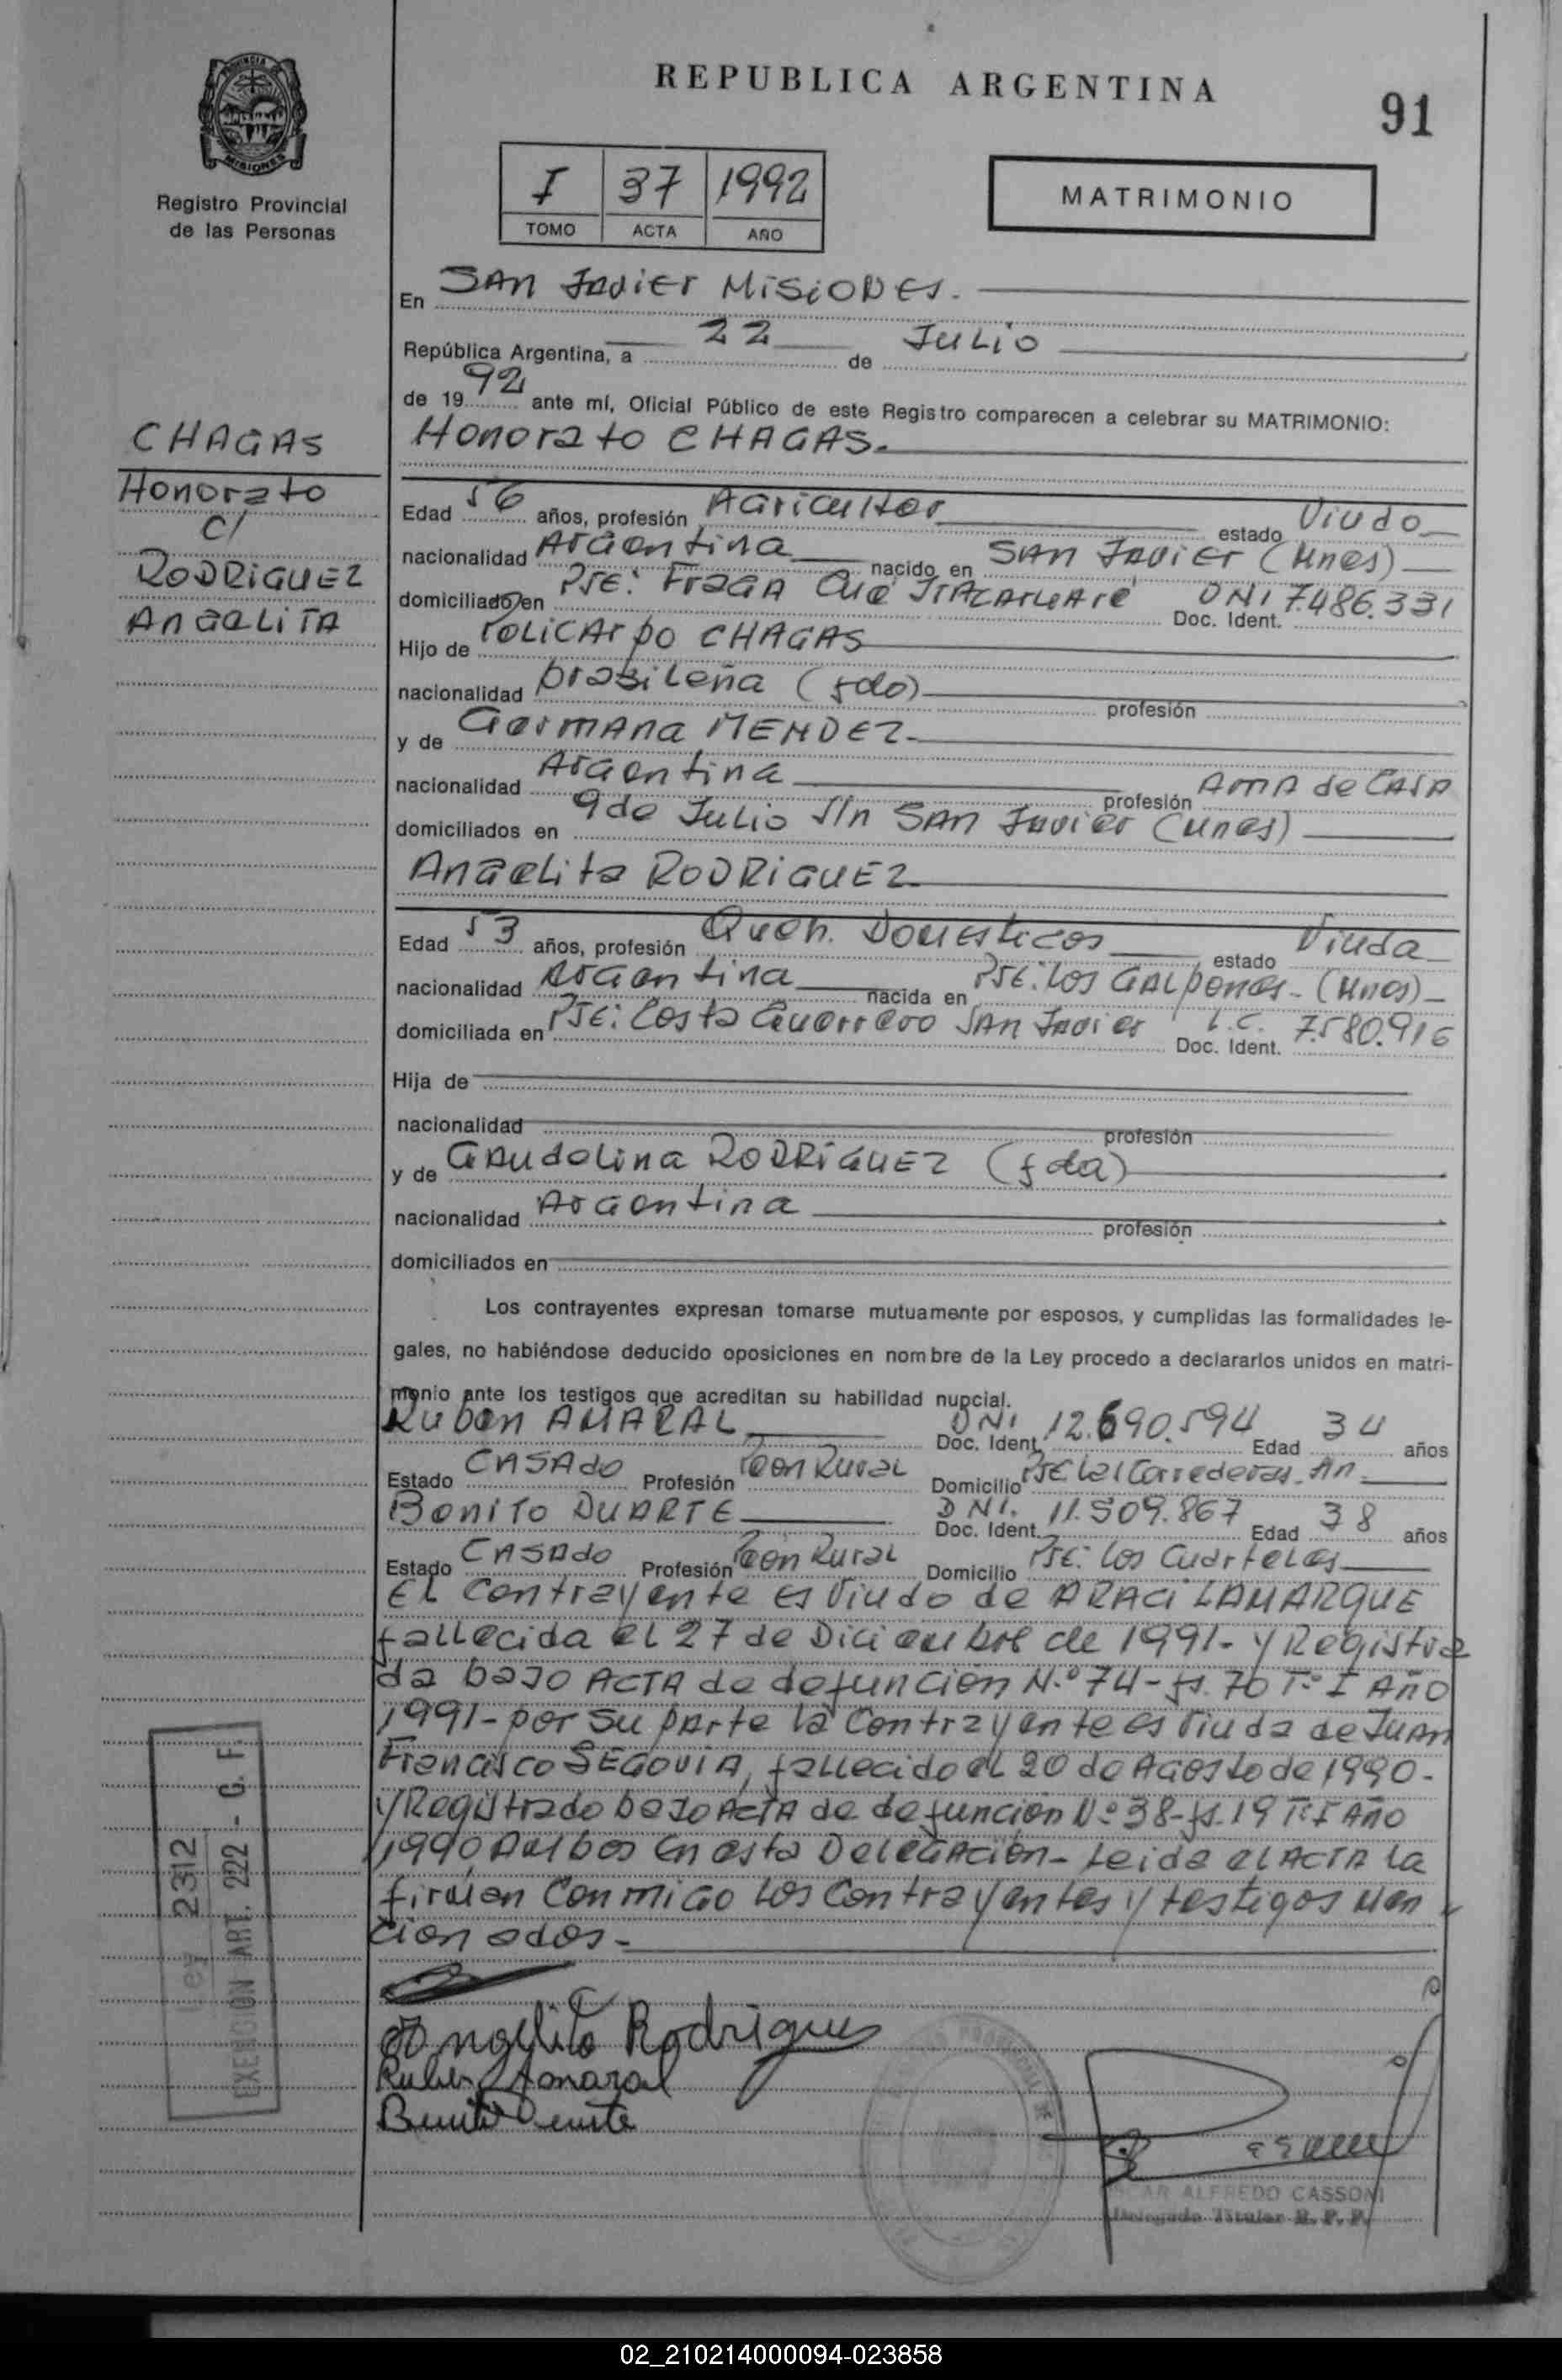 REPUBLICA ARGENTINA
91
PROVINCIA DE
MISIONES
Registro Provincial
de las Personas
I 37 1992
TOMO ACTA AÑO
MATRIMONIO
En SAN Javier Misiones.
República Argentina, a 22 de Julio
de 1992 ante mí, Oficial Público de este Registro comparecen a celebrar su MATRIMONIO:
CHAGAS
Honorato
c/
RODRIGUEZ
Angelita
Honorato CHAGAS.
Edad 56 años, profesión Agricultor estado Viudo
nacionalidad Argentina nacido en SAN Javier (Mnes)
domiciliado en Pje: Fraga Cué DNI Doc. Ident. 7.486.331
Hijo de Policarpo CHAGAS
nacionalidad brasileña (fdo) profesión
y de Germana MENDEZ.
nacionalidad Argentina profesión Ama de Casa
domiciliados en 9 de Julio S/n SAN Javier (Mnes)
Angelita RODRIGUEZ
Edad 53 años, profesión Queh. Domesticos estado Viuda
nacionalidad Argentina nacida en Pje: Los Galpones - (Mnes)
domiciliada en Pje: Costa Guerrero SAN Javier L.C. Doc. Ident. 7.580.916
Hija de
nacionalidad profesión
y de Gaudolina RODRIGUEZ (fda)
nacionalidad Argentina profesión
domiciliados en
Los contrayentes expresan tomarse mutuamente por esposos, y cumplidas las formalidades le-
gales, no habiéndose deducido oposiciones en nombre de la Ley procedo a declararlos unidos en matri-
monio ante los testigos que acreditan su habilidad nupcial.
Ruben AMARAL DNI Doc. Ident. 12.690.594 Edad 34 años
Estado Casado Profesión Peon Rural Domicilio Pje Las Correderas
Benito DUARTE DNI. Doc. Ident. 11.509.867 Edad 38 años
Estado Casado Profesión Peon Rural Domicilio Pje: Los Cuarteles
El Contrayente es Viudo de ARACI LAMARQUE
fallecida el 27 de Diciembre de 1991- y Registra
da bajo ACTA de defunción N.º 74- fs. 70 Tº I Año
1991- por su parte la Contrayente es Viuda de Juan
Francisco SEGOVIA, fallecido el 20 de Agosto de 1990-
y Registrado bajo ACTA de defunción Nº 38- fs. 19 Tº I Año
1990 Ambos en esta Delegación- Leida el ACTA la
firman conmigo los Contrayentes y testigos men
cionados-
Angelita Rodrigues
Ruben Amaral
Benito Duarte
Ley 2312
EXENCION ART. 222 - G. F.
OSCAR ALFREDO CASSONI
Delegado Titular R. P. P.
02_210214000094-023858